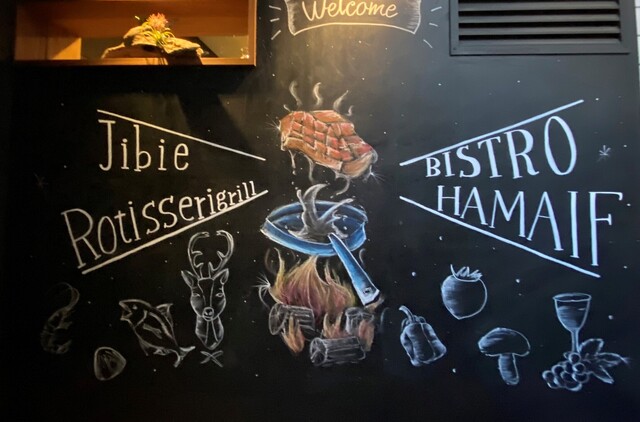 Welcome
Jibie
Rotisserigrill
BISTRO
HAMAIF